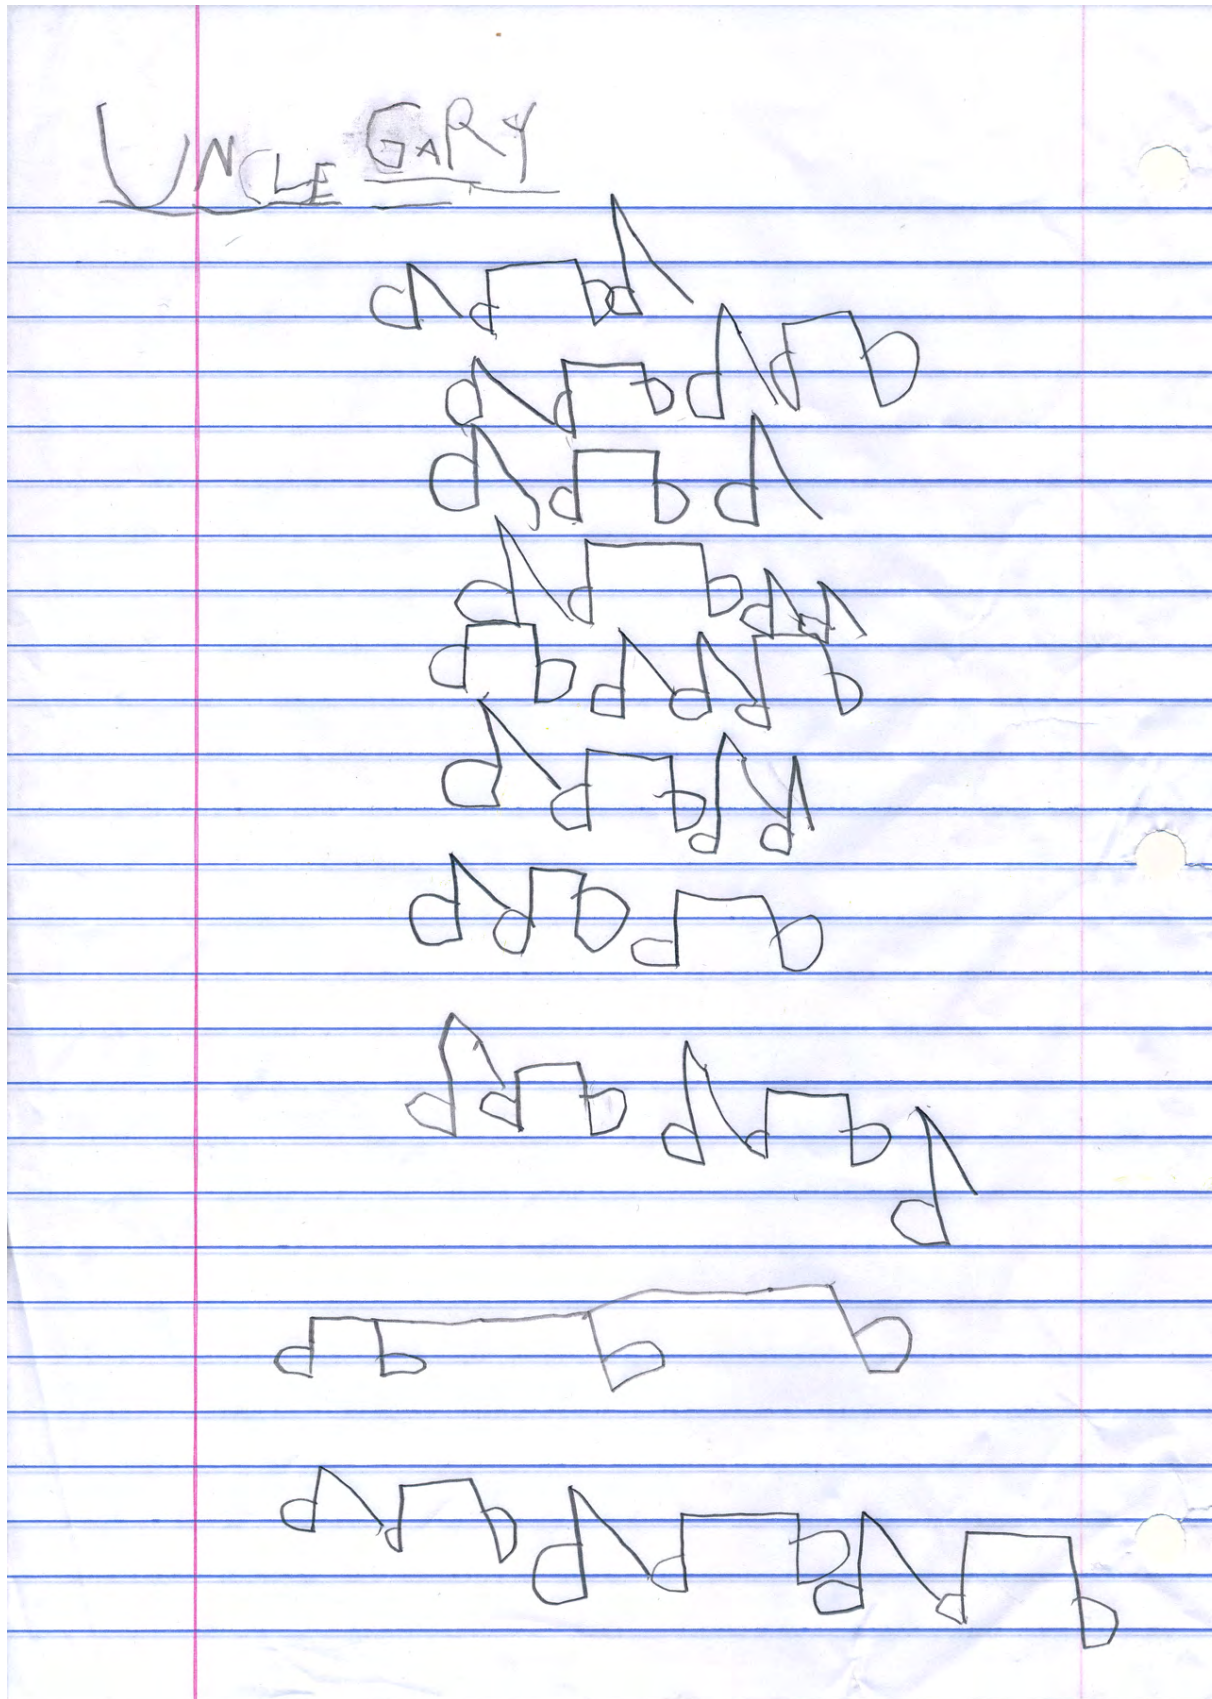 UNCLE GARY